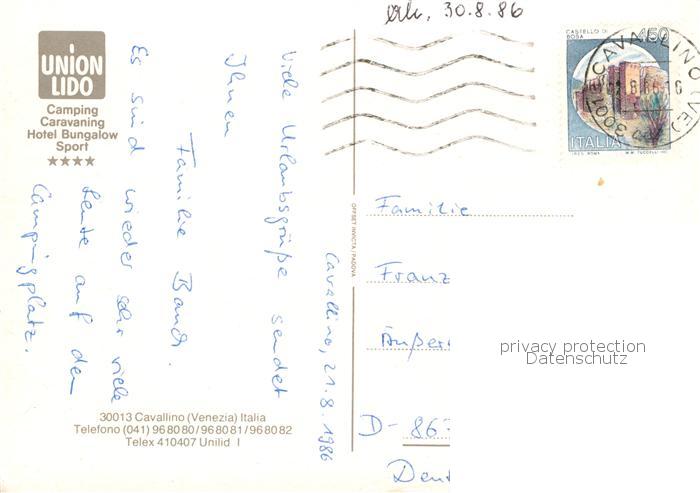 erh. 30.8.86
UNION
LIDO
Camping
Caravaning
Hotel Bungalow
Sport
Cavallino, 21.8.1986
Viele Urlaubsgrüße sendet
Ihnen
Familie Band.
Es sind wieder sehr viele
Leute auf dem
Campingplatz.
30013 Cavallino (Venezia) Italia
Telefono (041) 968080/968081/968082
Telex 410407 Unilid I
OFFSET INVICTA / PADOVA
CASTELLO DI
BOSA
450
ITALIA
CAVALLINO (VE)
Familie
Franz
Äußer
D-86
privacy protection
Datenschutz